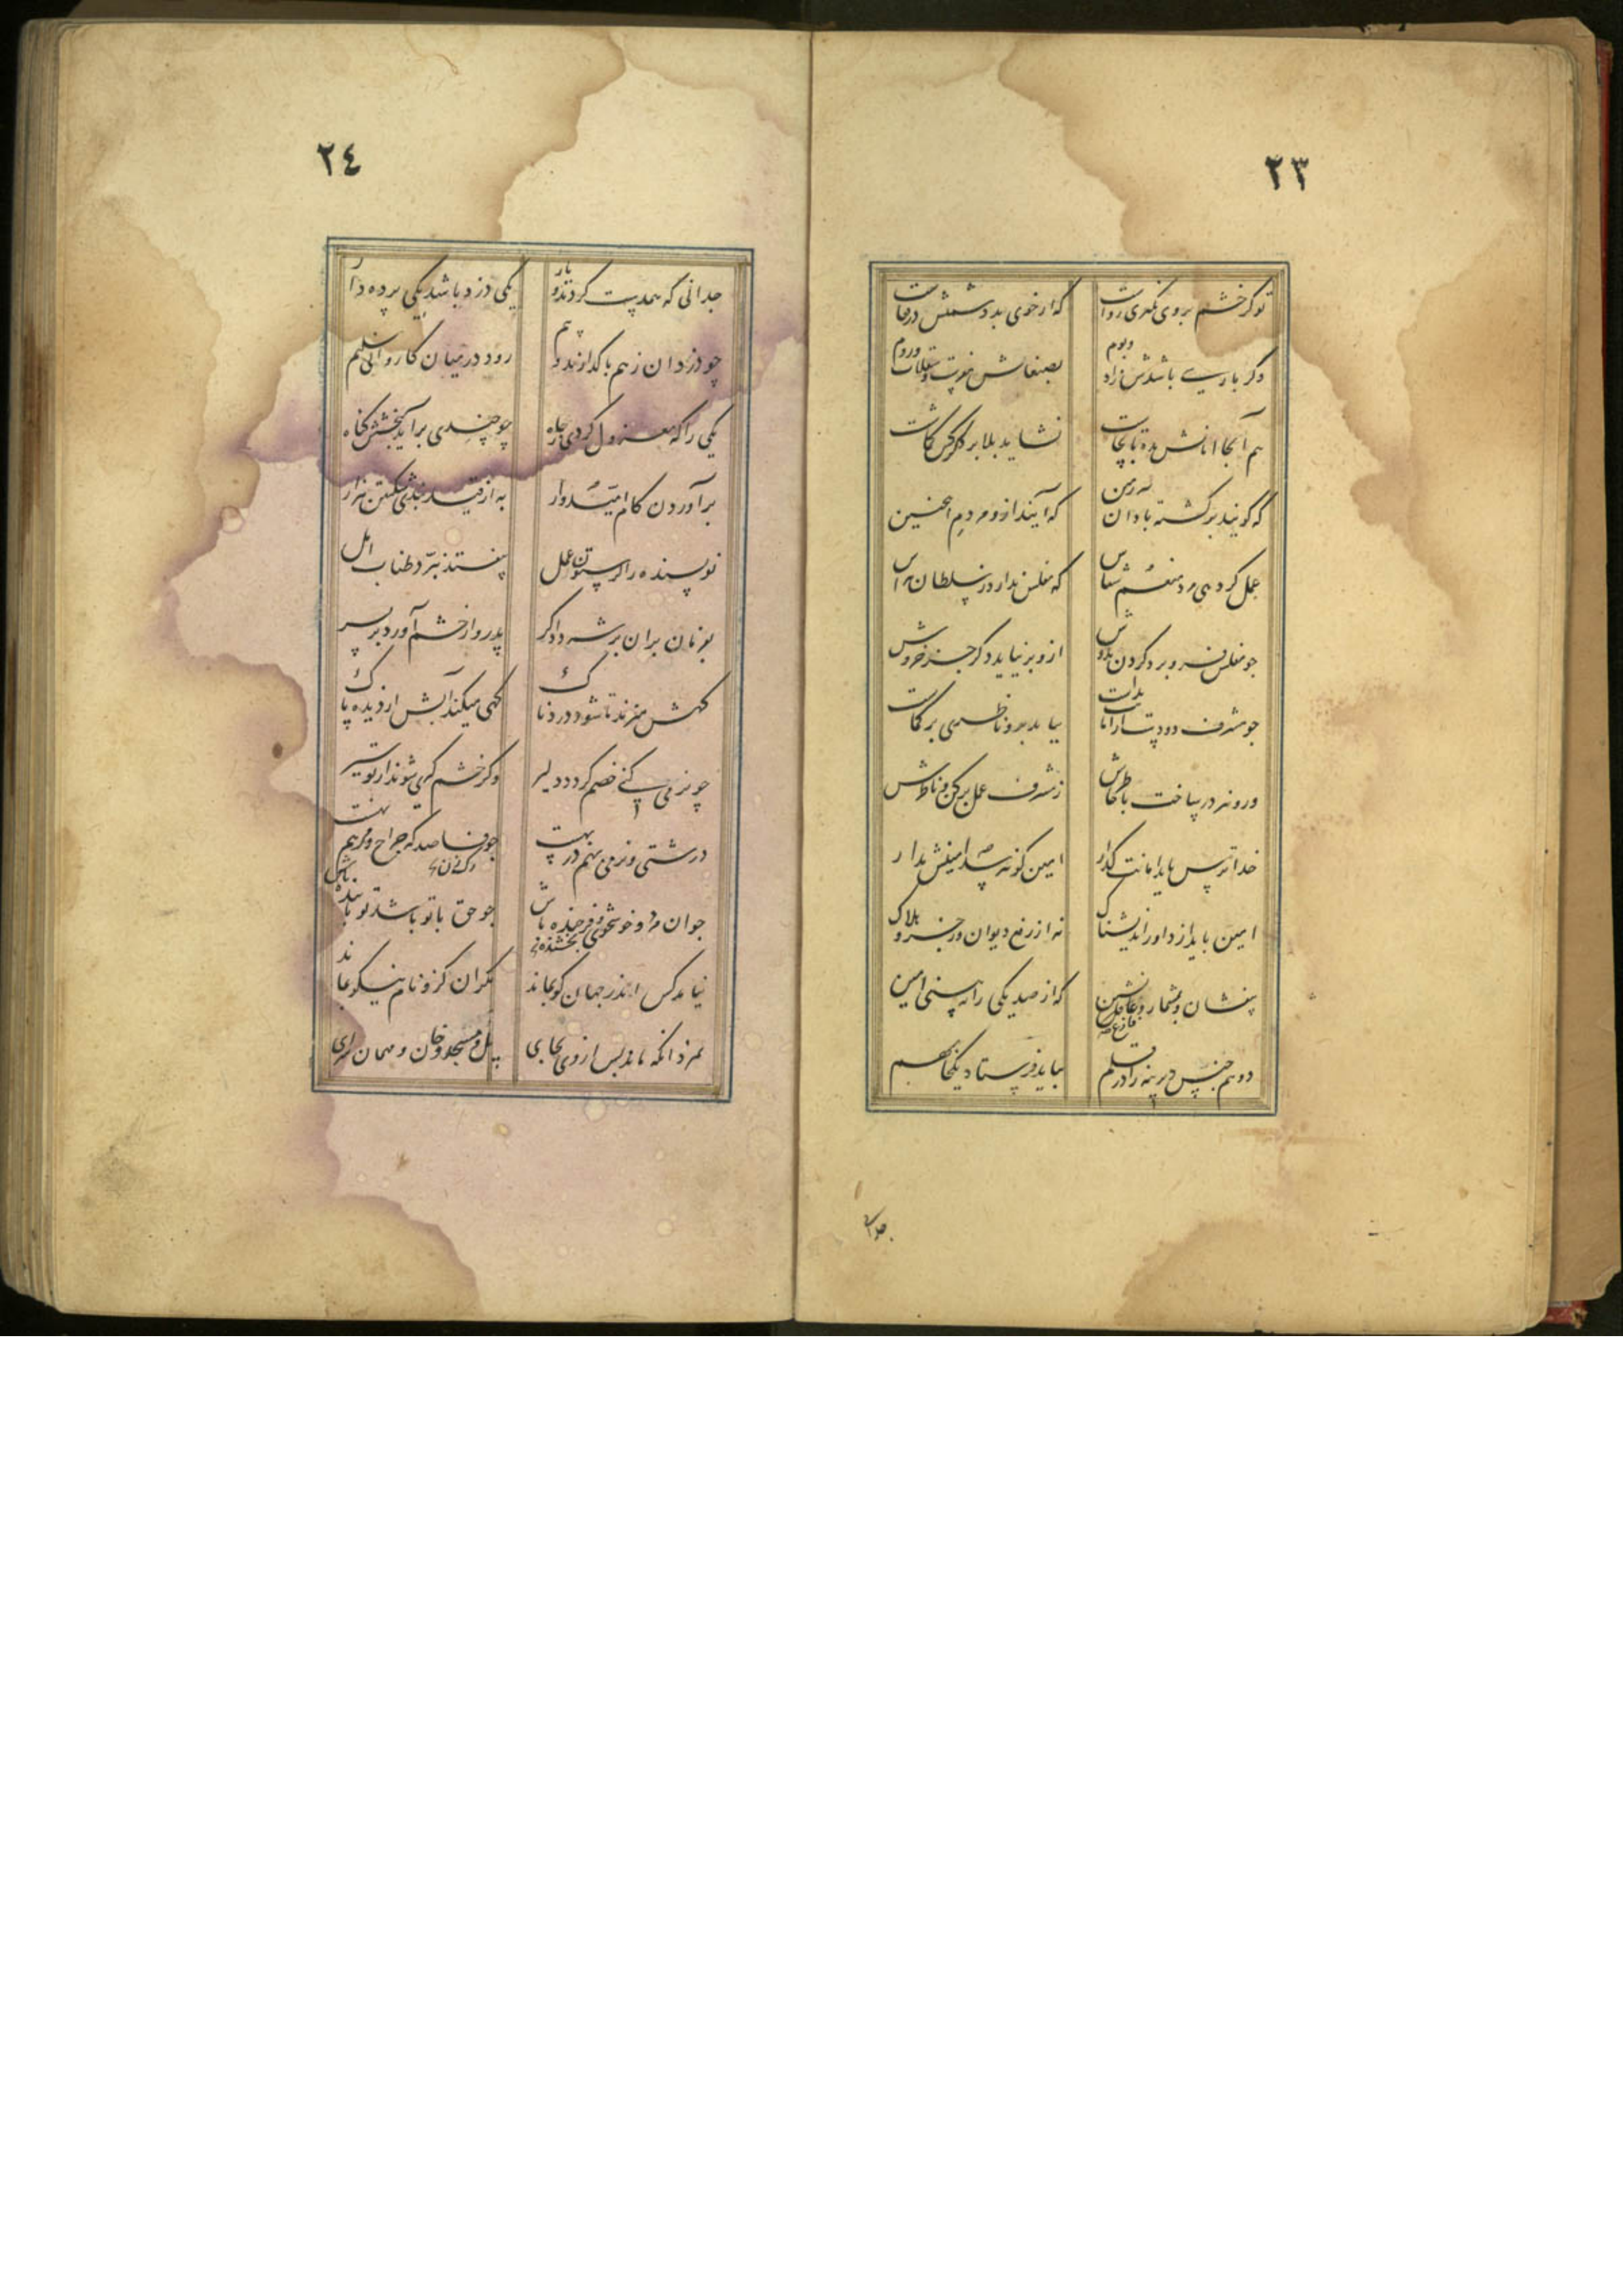 ٢٣
تو کر خشم بروی نکیری رواست که از خوی بد دشمنش در قفاست
وکر پارسے باشدش زاد وبوم بصنعاش مفرست وسقلاب وروم
هم آنجا امانش بده تا بچاشت نشاید بلا بر دکر کس کماشت
که کویند برکشته باد ان زمین که آیند ازو مردم اینچنین
عمل کر دهی مرد منعم شناس که مفلس ندارد ز سلطان هراس
چو مفلس فرو برد کردن بدوش ازو بر نیاید دکر جز خروش
چو مشرف دو دست از امانت بداشت بباید برو ناظری بر کماشت
ور و نیز در ساخت با خاطرش ز مشرف عمل بر کن و ناظرش
خدا ترس باید امانت کذار امین کز تو ترسد امینش مدار
امین باید از داور اندیشناک نه از رفع دیوان وزجر وهلاک
بیفشان و بشمار و عاقل نشین که از صد یکی را نه بینی امین
فارغ
دو هم جنس دیرینه را در قلم نباید فرستاد یکجا بهم
٢٤
چدانی که همدست کردند ویار یکی دزد باشد یکی پرده دار
چو دزدان زهم باک دارند وبیم رود در میان کاروانی سلیم
یکی را که معزول کردی ز جاه چو چندی برآید ببخشش کناه
برآوردن کام امیدوار به از قید بندی شکستن هزار
نویسنده را کر ستون عمل بیفتد نبرد طناب امل
بفرمان بران بر شه دادکر پدر وار خشم آورد بر پسر
کهش میزند تا شود دردناک کهی میکند آبش از دیده پاک
چو نرمی کنے خصم کردد دلیر وکر خشم کیری شوند از تو سیر
درشتی ونرمی بهم در بهست چو فاصد که جراح ومرهم نهست
جوان مرد و خوشخوی وبخشنده باش چو حق با تو باشد تو با بنده باش
نیامد کس اندر جهان کو بماند مکر آن کزو نام نیکو بماند
نمرد آنکه ماند پس از وی بجای پل و مسجد و خان و مهمان سرای